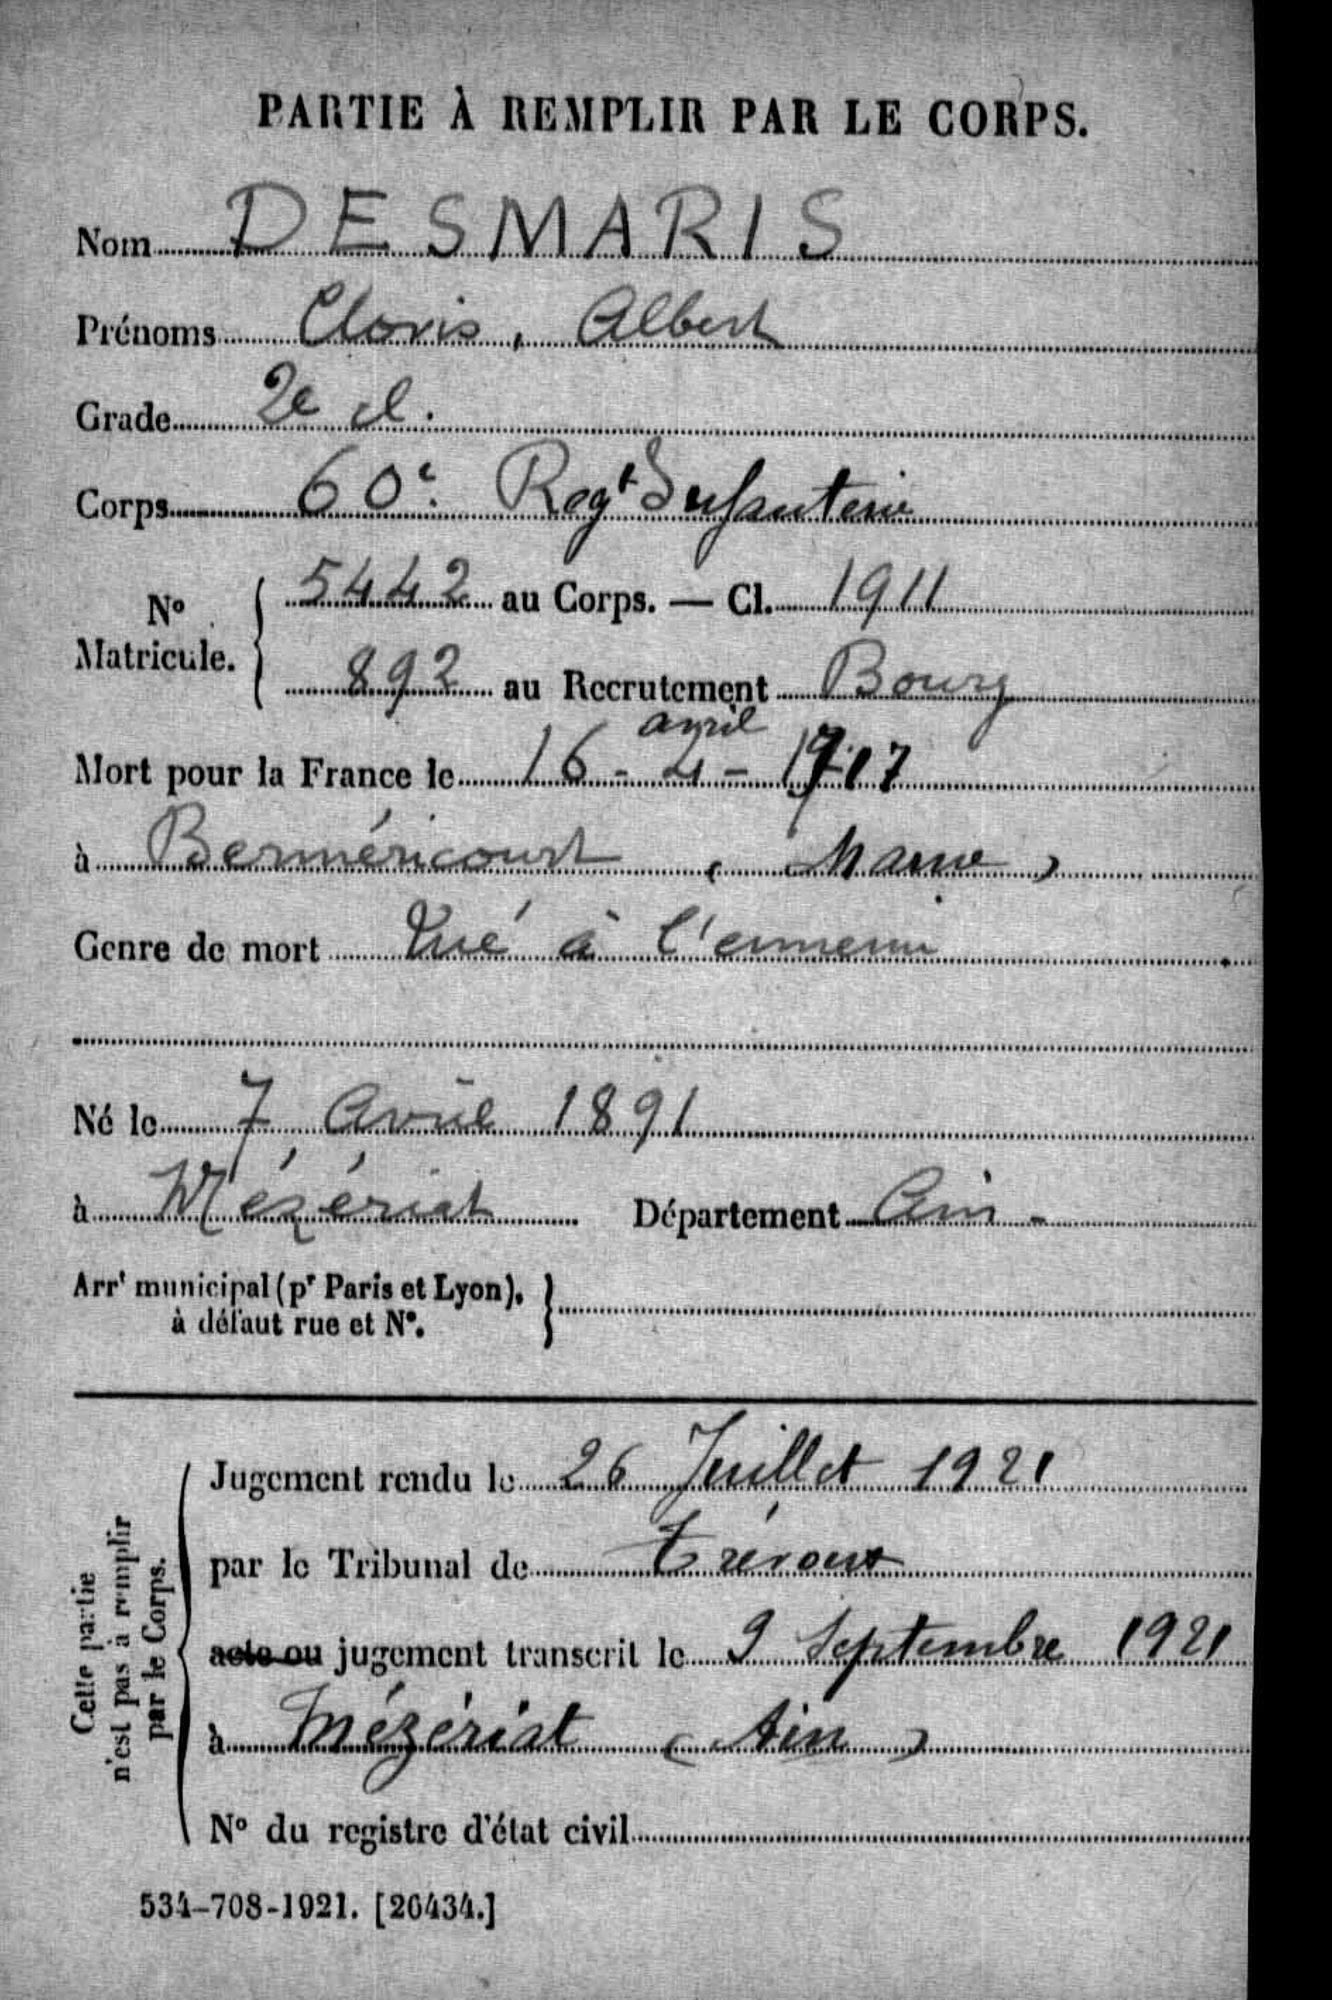 PARTIE À REMPLIR PAR LE CORPS.
Nom DESMARIS
Prénoms Clovis, Albert
Grade 2e cl.
Corps 60e Regt Infanterie
No Matricule. 5442 au Corps. — Cl. 1911
892 au Recrutement Bourg
avril
Mort pour la France le 16 - 4 - 1917
à Berméricourt (Marne)
Genre de mort Tué à l'ennemi
Né le 7 Avril 1891
à Mézériat Département Ain -
Arrt municipal (pr Paris et Lyon),
à défaut rue et No.
Cette partie
n'est pas à remplir
par le Corps.
Jugement rendu le 26 Juillet 1921
par le Tribunal de Trévoux
acte ou jugement transcrit le 9 Septembre 1921
à Mézériat (Ain)
No du registre d'état civil
534-708-1921. [20434.]